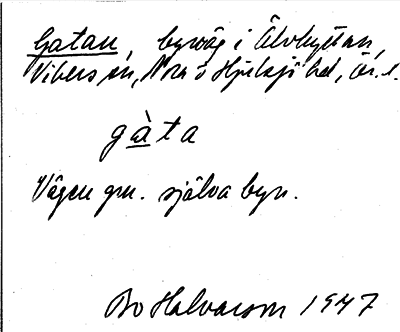 Gatan, byväg i Älvhyttan,
Vikers sn, Nora o Hjulsjö hd, Ör. l.
gàta
Vägen gm. själva byn.
Bo Halvarson 1947